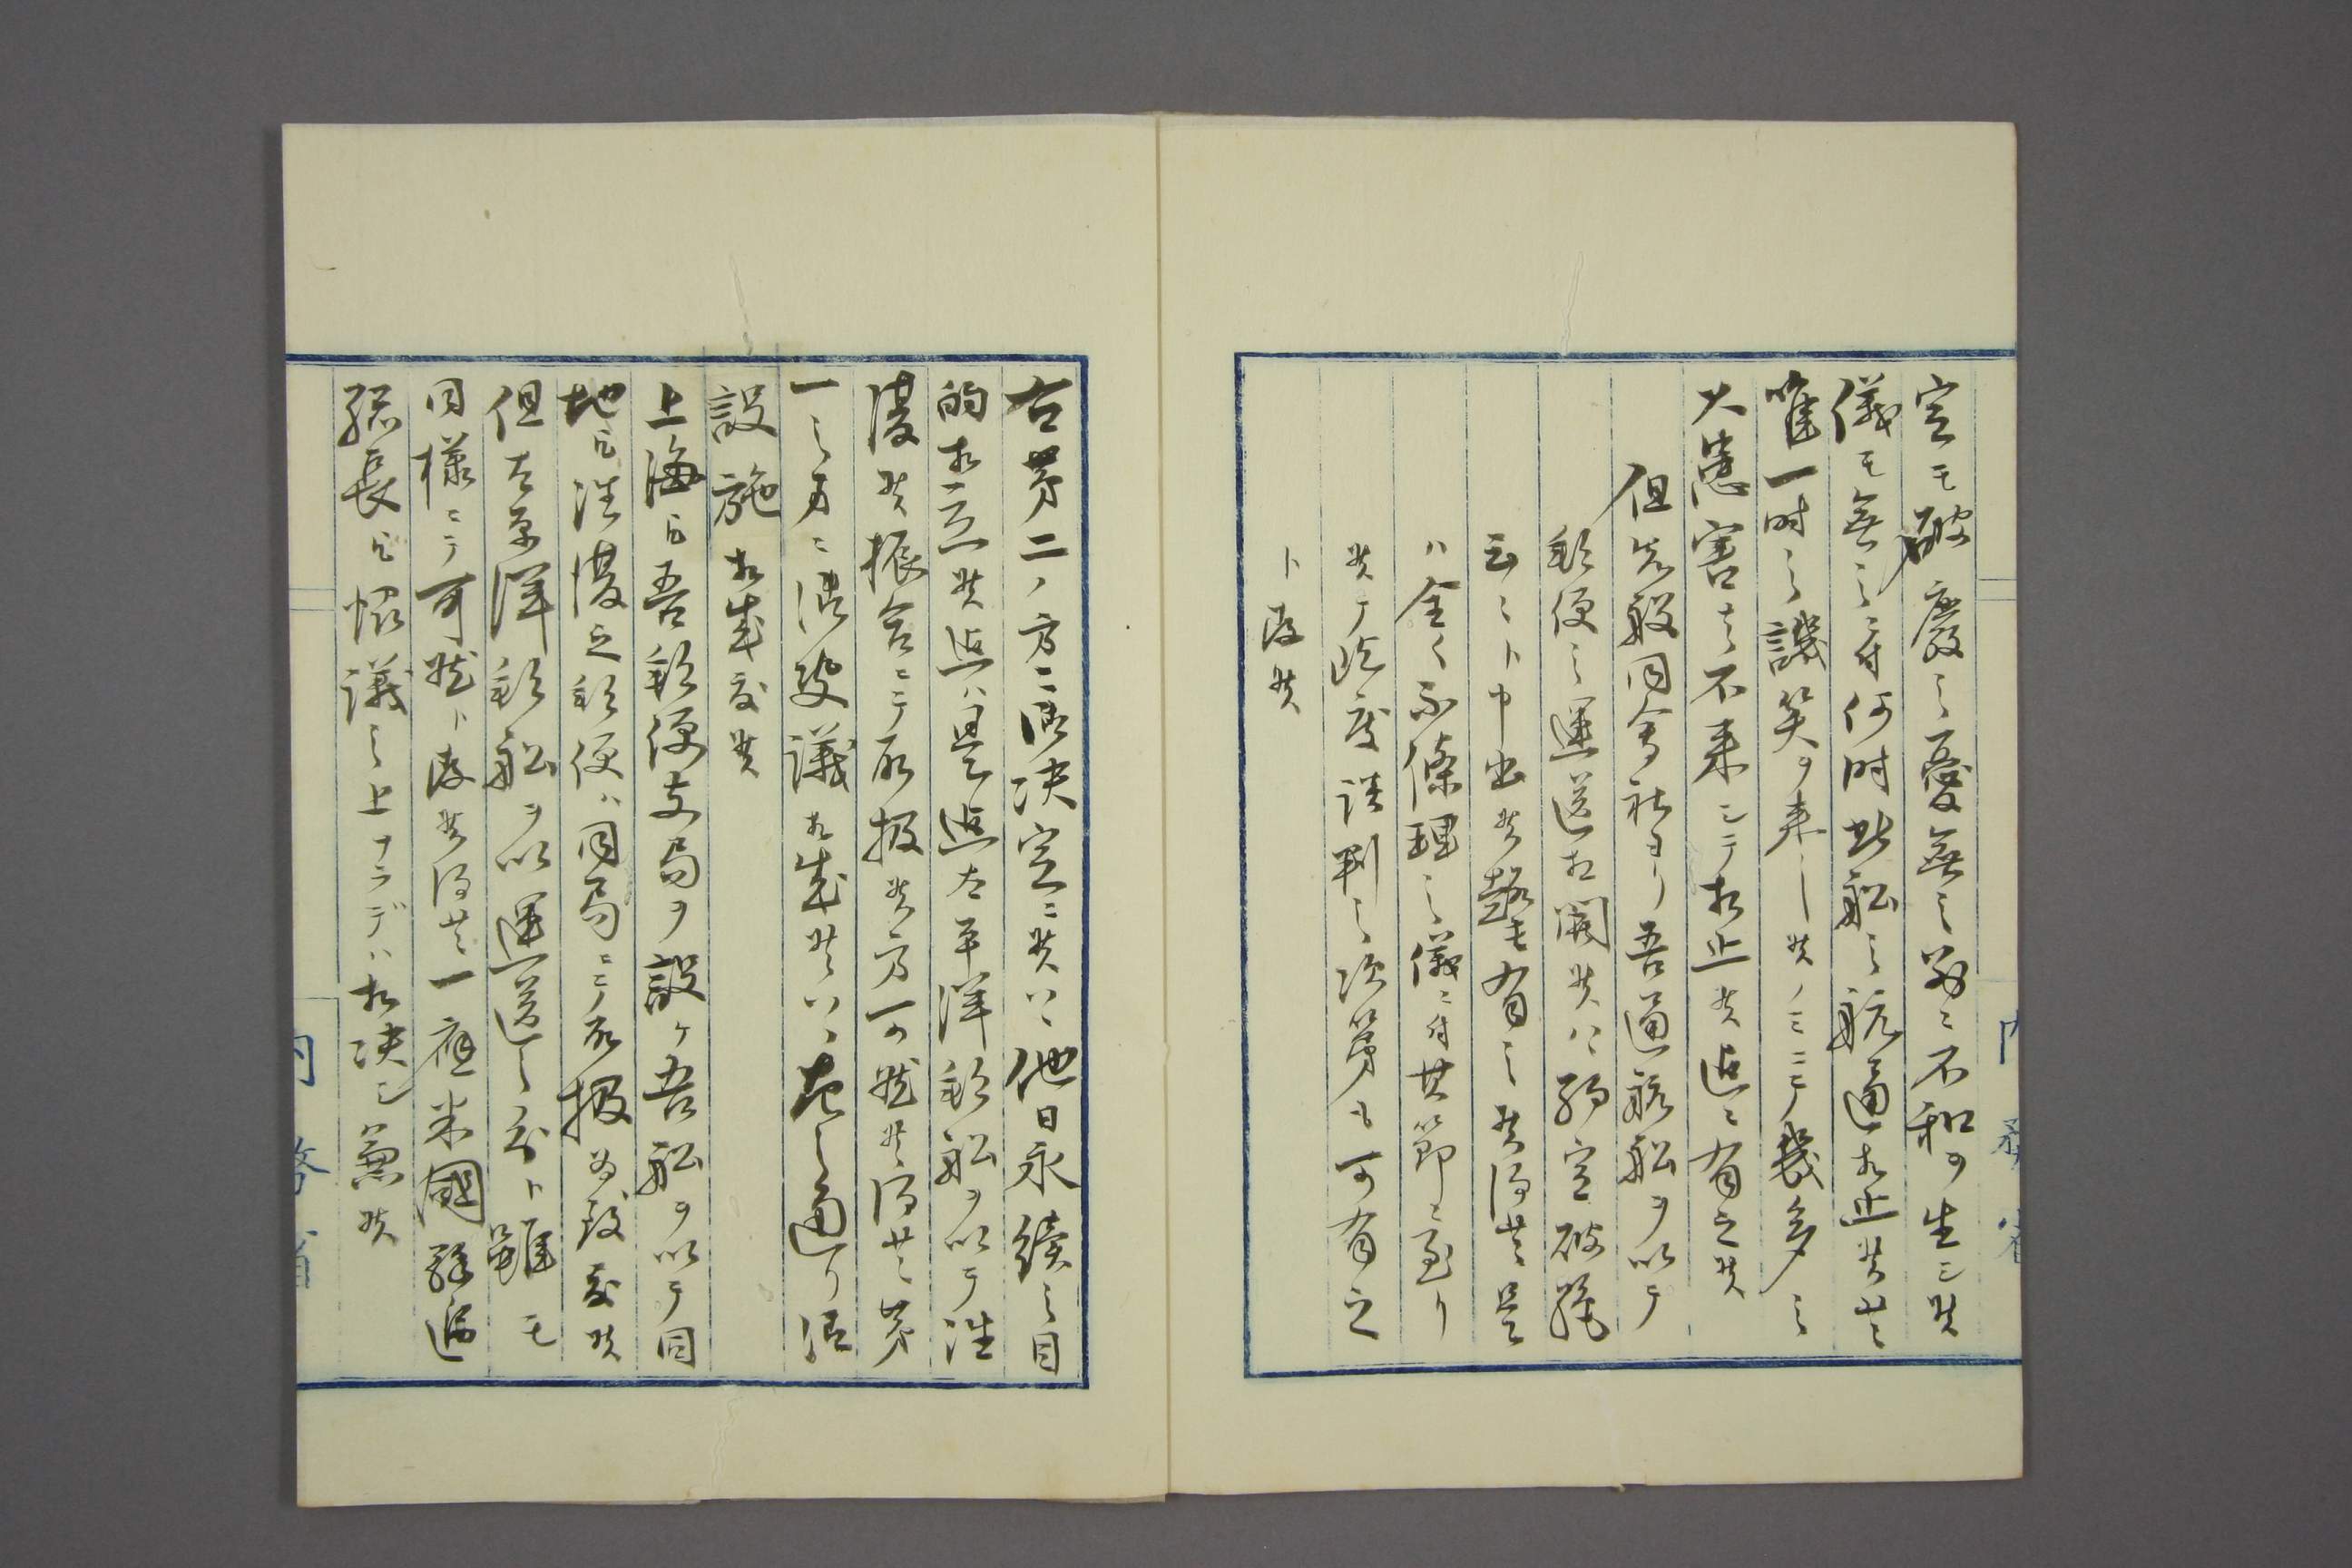 定モ破廢之憂無之別ニ不和ヲ生シ候
儀モ無之ニ付何時此船之航通相止候共
唯一時之譏笑ヲ来し候ノミニテ幾多之
大患害ハ不来シテ相止候迄ニ有之候
但先般同会社ヨリ吾通航船ヲ以テ
郵便之運送相開候ハヽ約定破縦
云々ト申出候趣モ有之候得共是
ハ全ク不條理之儀ニ付其節ニ至リ
候テ屹度談判之次第も可有之
ト存候
右第二ノ方ニ御決定ニ候ハヽ他日永續之目
的相立候迄ハ是迄太平洋郵船ヲ以テ往
復候振合ニテ取扱候方可然候得共第
一之方ニ御決議相成候ハヽ左之通リ御
設施相成度候
上海ヘ吾郵便支局ヲ設ケ吾船ヲ以テ同
地ヘ往復之郵便ハ同局ニテ取扱為致度候
但太平洋郵船ヲ以運送之分ト雖モ
同様ニテ可然ト存候得共一應米國驛逓
總長ヘ協議之上ナラデハ相決シ兼候
内務省
内務省